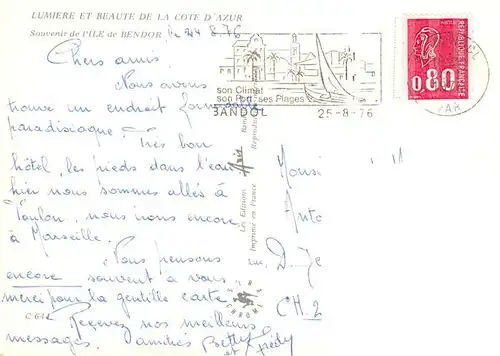 LUMIERE ET BEAUTE DE LA COTE D'AZUR
Souvenir de l'ILE de BENDOR
le 24 8.76
Chers amis.
Nous avons
trouvé un endroit formidable
paradisiaque. Très bon
hôtel, les pieds dans l'eau
hier nous sommes allés à
Toulon, nous irons encore
à Marseille.
Nous pensons
encore souvent à vous
merci pour la gentille carte
Recevez nos meilleurs
messages. amitiés Betty
et
son Climat
son Port, ses Plages
BANDOL
25-8-76
REPUBLIQUE FRANÇAISE
0,80
VAR
Les Editions
Aris
Imprimé en France
Monsi
Anto
CH.2